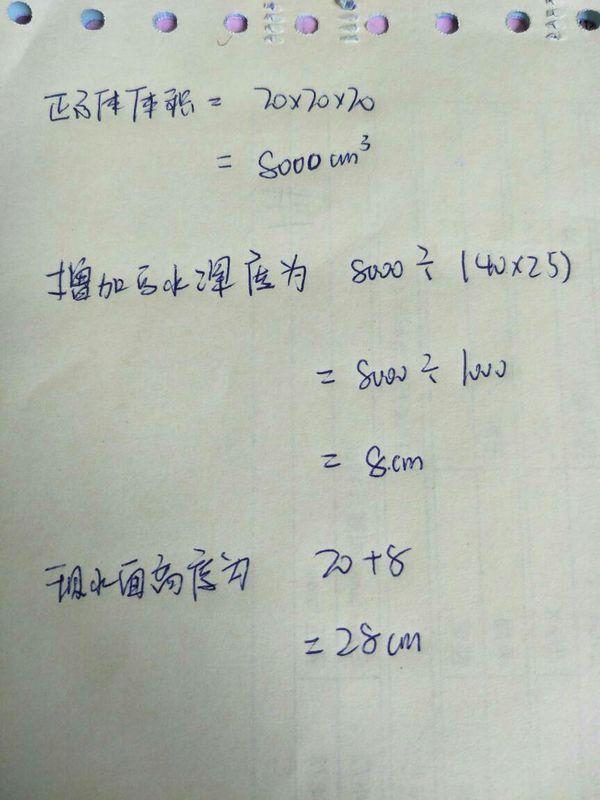 正方体体积 = 20×20×20
= 8000cm³
增加的水深度为 8000÷(40×25)
= 8000÷1000
= 8cm
现水面高度为 20+8
= 28cm